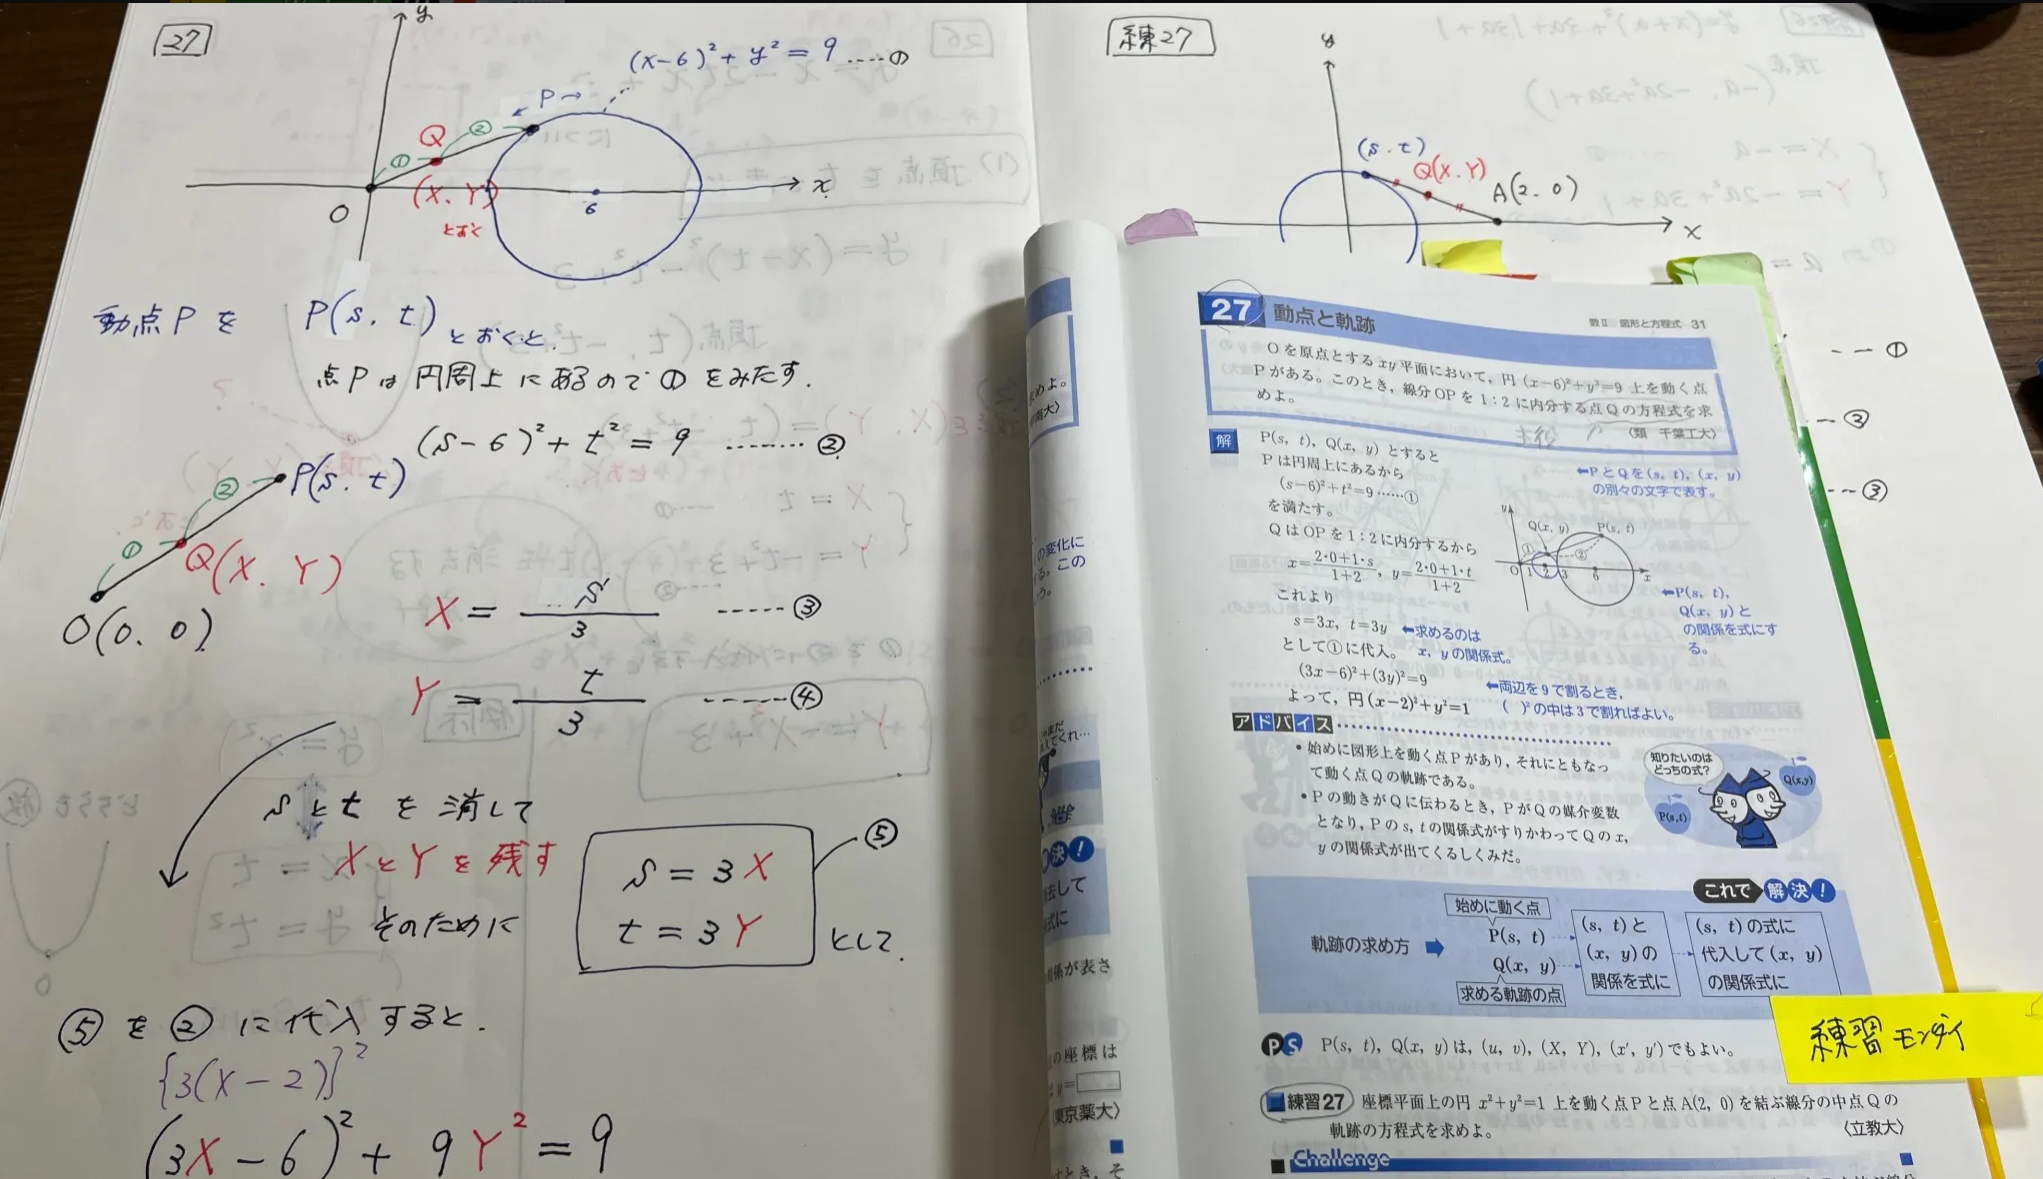 27
y
(x-6)²+y²=9 ....①
P→
Q
②
①
(X, Y)
とおく
O
6
x
動点Pを P(s, t) とおくと,
点Pは円周上にあるので①をみたす.
(s-6)²+t²=9 ........②
②
P(s, t)
①
Q(X, Y)
O(0, 0)
X = s/3 -----③
Y = t/3 -----④
sとtを消して
XとYを残す
そのために
s = 3X
t = 3Y
⑤
として
⑤を②に代入すると.
{3(X-2)}²
(3X-6)²+9Y²=9
練27
y
(s, t)
Q(X, Y)
A(2, 0)
x
--- ①
--- ②
--- ③
27 動点と軌跡
数Ⅱ 図形と方程式 31
Oを原点とするxy平面において,円 (x-6)²+y²=9 上を動く点
Pがある。このとき,線分OPを1:2に内分する点Qの方程式を求
めよ。
〈類 千葉工大〉
解
P(s, t), Q(x, y)とすると
Pは円周上にあるから
(s-6)²+t²=9 ……①
を満たす。
QはOPを1:2に内分するから
x=(2・0+1・s)/(1+2), y=(2・0+1・t)/(1+2)
これより
s=3x, t=3y
として①に代入。
(3x-6)²+(3y)²=9
よって,円 (x-2)²+y²=1
⬅PとQを(s, t), (x, y)
の別々の文字で表す。
y
Q(x, y)
P(s, t)
①
②
O 1 2 3 6 x
⬅P(s, t),
Q(x, y)と
の関係を式にす
る。
⬅求めるのは
x, yの関係式。
⬅両辺を9で割るとき,
( )²の中は3で割ればよい。
アドバイス
・始めに図形上を動く点Pがあり,それにともなっ
て動く点Qの軌跡である。
・Pの動きがQに伝わるとき,PがQの媒介変数
となり,Pのs, tの関係式がすりかわってQのx,
yの関係式が出てくるしくみだ。
知りたいのは
どっちの式?
P(s,t)
Q(x,y)
これで 解決!
軌跡の求め方
始めに動く点
P(s, t)
Q(x, y)
求める軌跡の点
(s, t)と
(x, y)の
関係を式に
(s, t)の式に
代入して(x, y)
の関係式に
PS P(s, t), Q(x, y)は, (u, v), (X, Y), (x′, y′)でもよい。
練習27 座標平面上の円 x²+y²=1 上を動く点Pと点A(2, 0)を結ぶ線分の中点Qの
軌跡の方程式を求めよ。
〈立教大〉
Challenge
練習モンダイ
の変化に
る。この
決!
去して
式に
関係が表さ
の座標は
y=
〈東京薬大〉
とき,そ